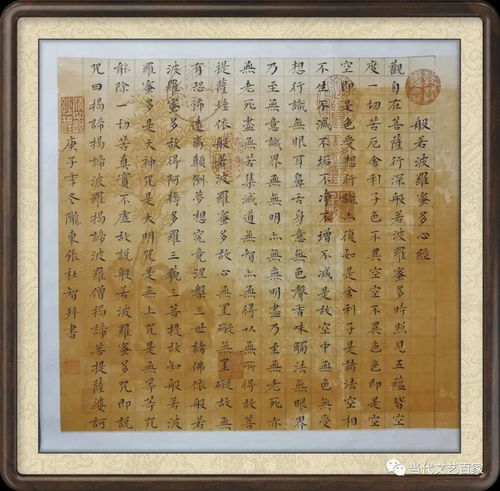 般若波羅蜜多心經
觀自在菩薩行深般若波羅蜜多時照見五蘊皆空
度一切苦厄舍利子色不異空空不異色色即是空
空即是色受想行識亦復如是舍利子是諸法空相
不生不滅不垢不淨不增不減是故空中無色無受
想行識無眼耳鼻舌身意無色聲香味觸法無眼界
乃至無意識界無無明亦無無明盡乃至無老死亦
無老死盡無苦集滅道無智亦無得以無所得故菩
提薩埵依般若波羅蜜多故心無罣礙無罣礙故無
有恐怖遠離顛倒夢想究竟涅槃三世諸佛依般若
波羅蜜多故得阿耨多羅三藐三菩提故知般若波
羅蜜多是大神咒是大明咒是無上咒是無等等咒
能除一切苦真實不虛故說般若波羅蜜多咒即說
咒曰揭諦揭諦波羅揭諦波羅僧揭諦菩提薩婆訶
庚子季冬隴東張社智拜書
当代文艺百家